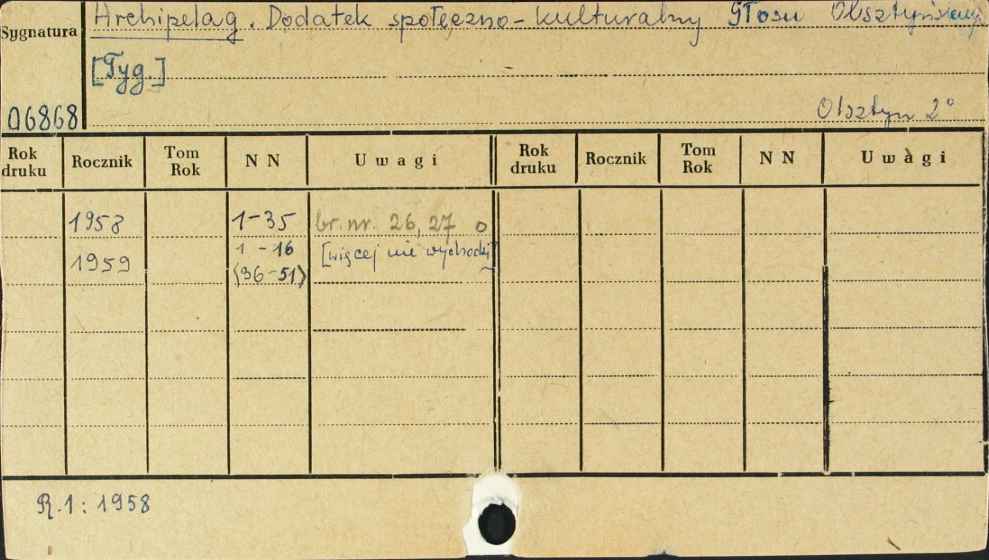 Sygnatura
Archipelag. Dodatek społeczno-kulturalny Głosu Olsztyńskiego
[Tyg.]
06868
Olsztyn 2°
Rok druku Rocznik Tom Rok NN Uwagi Rok druku Rocznik Tom Rok NN Uwagi
1958 1-35 br. nr. 26, 27 o
1959 1-16 [więcej nie wychodzi]
(36-51)
R.1: 1958